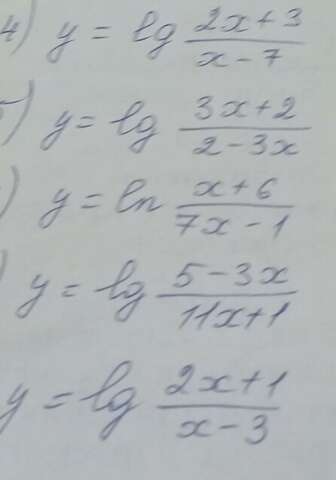 4) y = lg (2x+3)/(x-7)
5) y = lg (3x+2)/(2-3x)
) y = ln (x+6)/(7x-1)
) y = lg (5-3x)/(11x+1)
y = lg (2x+1)/(x-3)